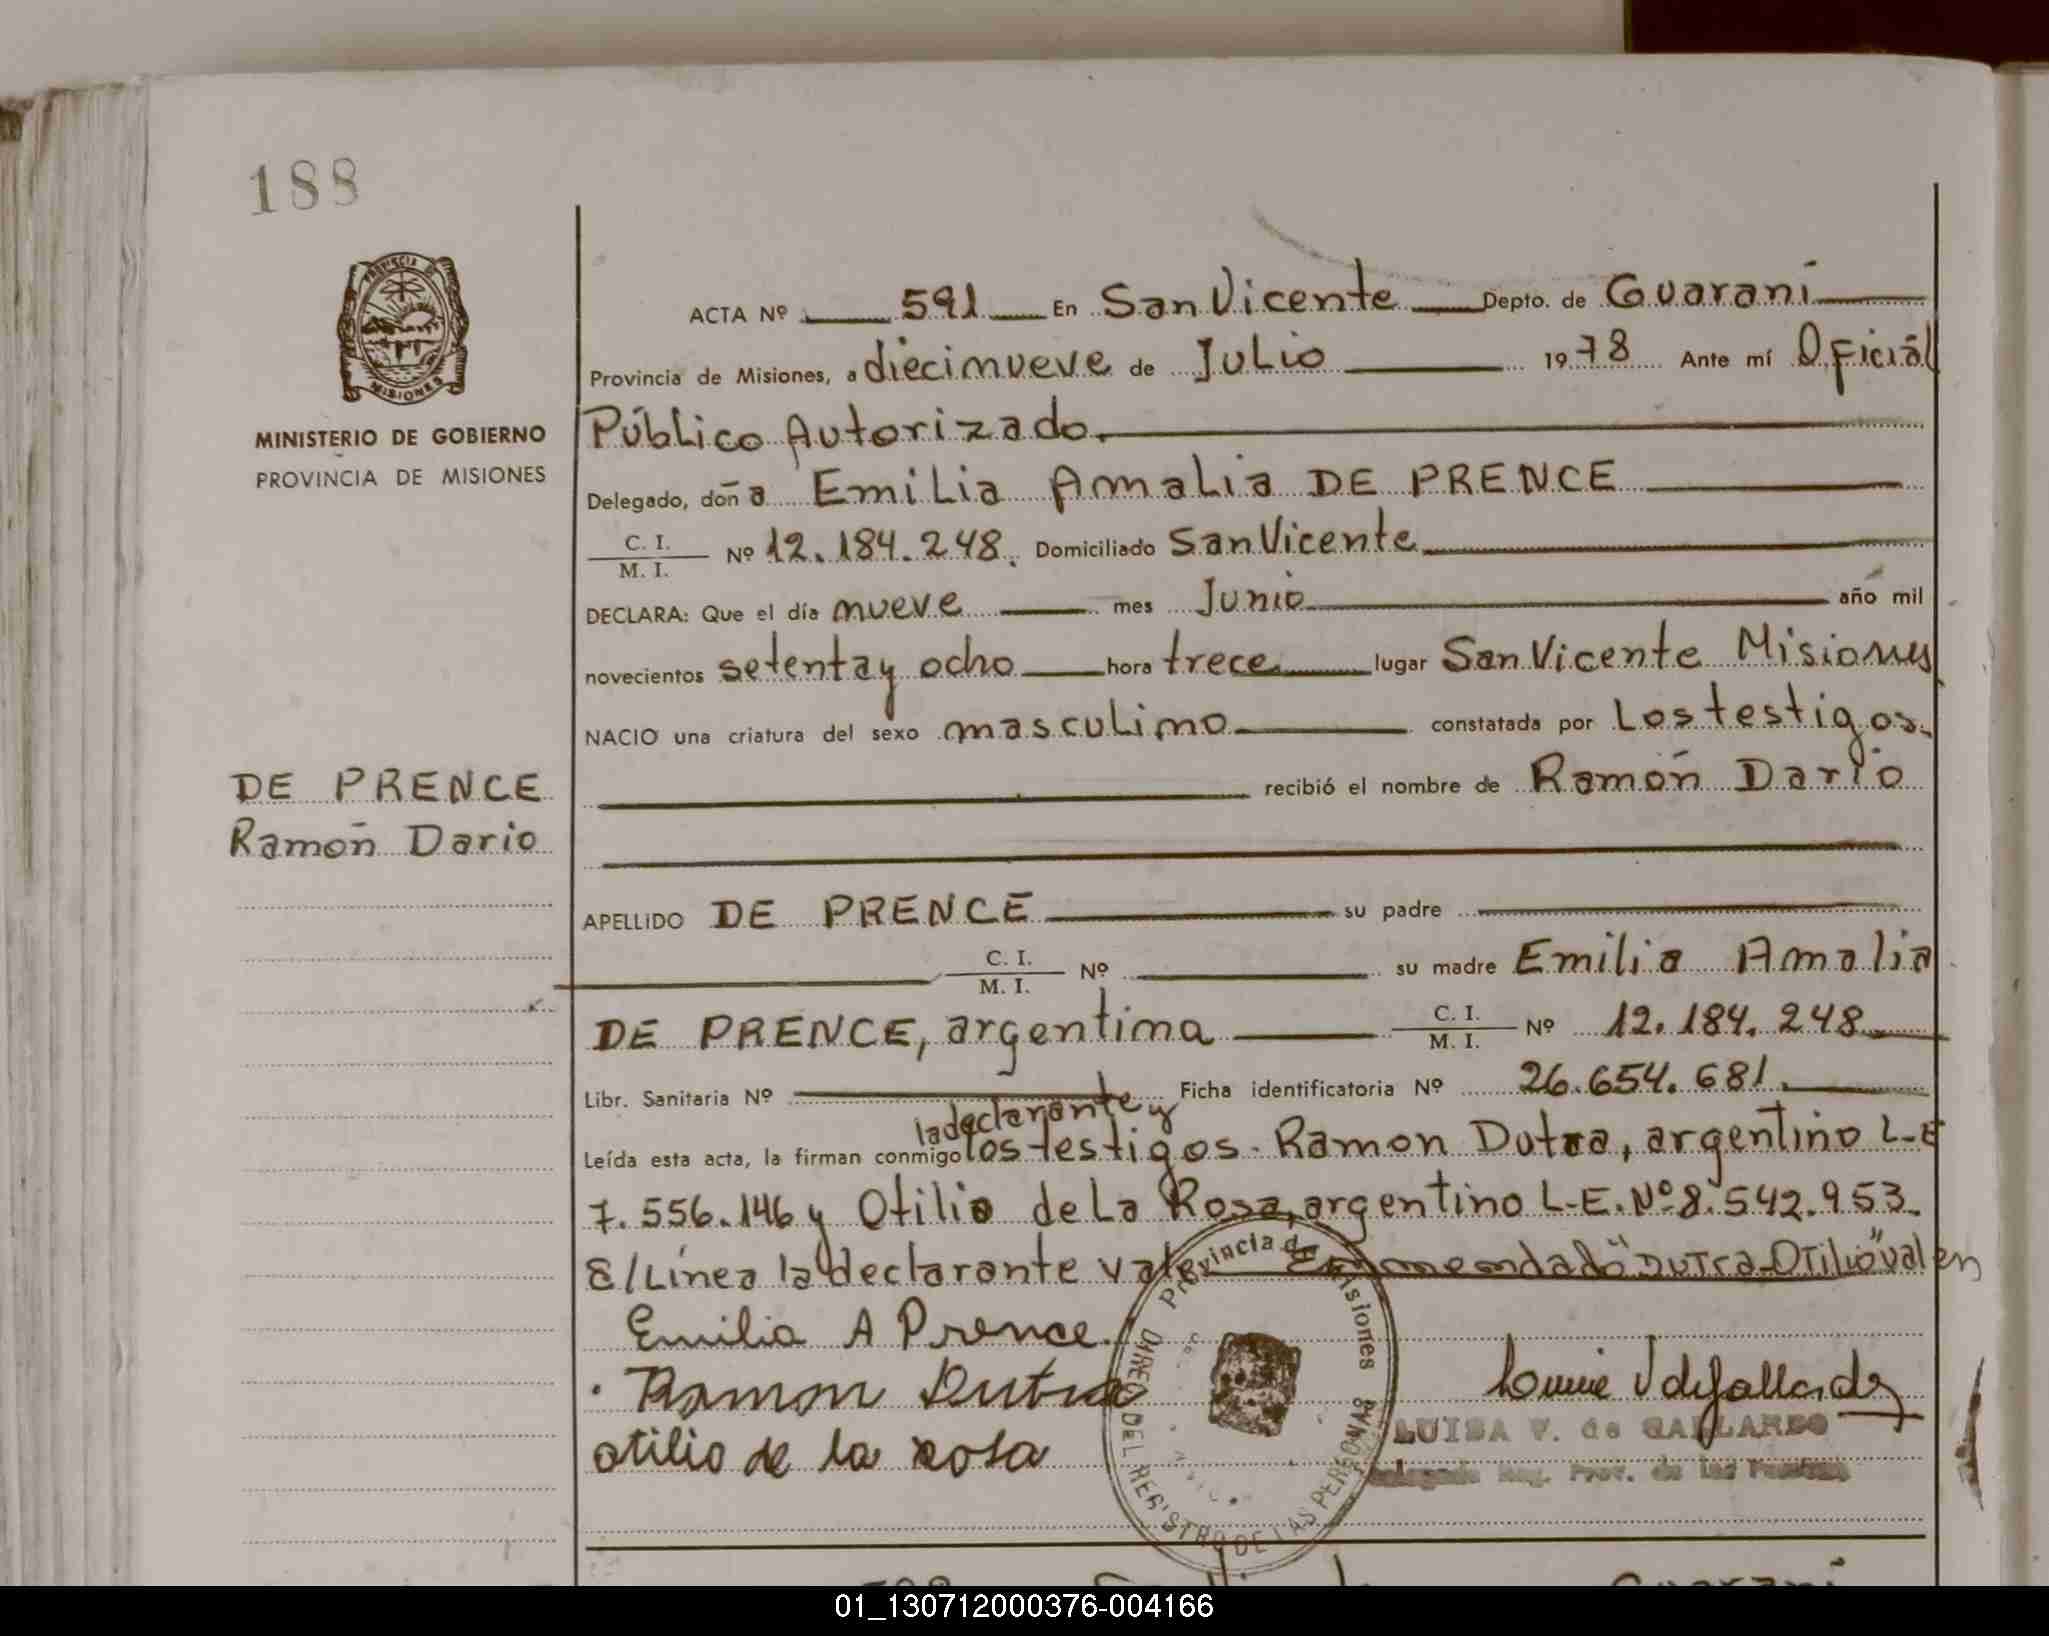 188
PROVINCIA DE
MISIONES
MINISTERIO DE GOBIERNO
PROVINCIA DE MISIONES
ACTA Nº 591 En San Vicente Depto. de Guaraní
Provincia de Misiones, a diecinueve de Julio 1978 Ante mí Oficial
Público Autorizado.
Delegado, doña Emilia Amalia DE PRENCE
C. I.
M. I. Nº 12.184.248. Domiciliado San Vicente
DECLARA: Que el día nueve mes Junio año mil
novecientos setenta y ocho hora trece lugar San Vicente Misiones
NACIO una criatura del sexo masculino constatada por Los testigos.
recibió el nombre de Ramón Darío
DE PRENCE
Ramón Dario
APELLIDO DE PRENCE su padre
C. I.
M. I. Nº su madre Emilia Amalia
DE PRENCE, argentina C. I.
M. I. Nº 12.184.248
Libr. Sanitaria Nº Ficha identificatoria Nº 26.654.681.
la declarante y
Leída esta acta, la firman conmigo los testigos. Ramon Dutra, argentino L-E
7.556.146 y Otilio de La Rosa, argentino L-E. Nº 8.542.953.
E/Línea la declarante vale Enmendado "Dutra-Otilio" valen
Emilia A Prence.
Ramon Dutra
otilio de la rosa
Provincia de Misiones
DEL REGISTRO DE LAS PERSONAS
LUISA V. de GALLARDO
Delegada Reg. Prov. de las Personas
01_130712000376-004166